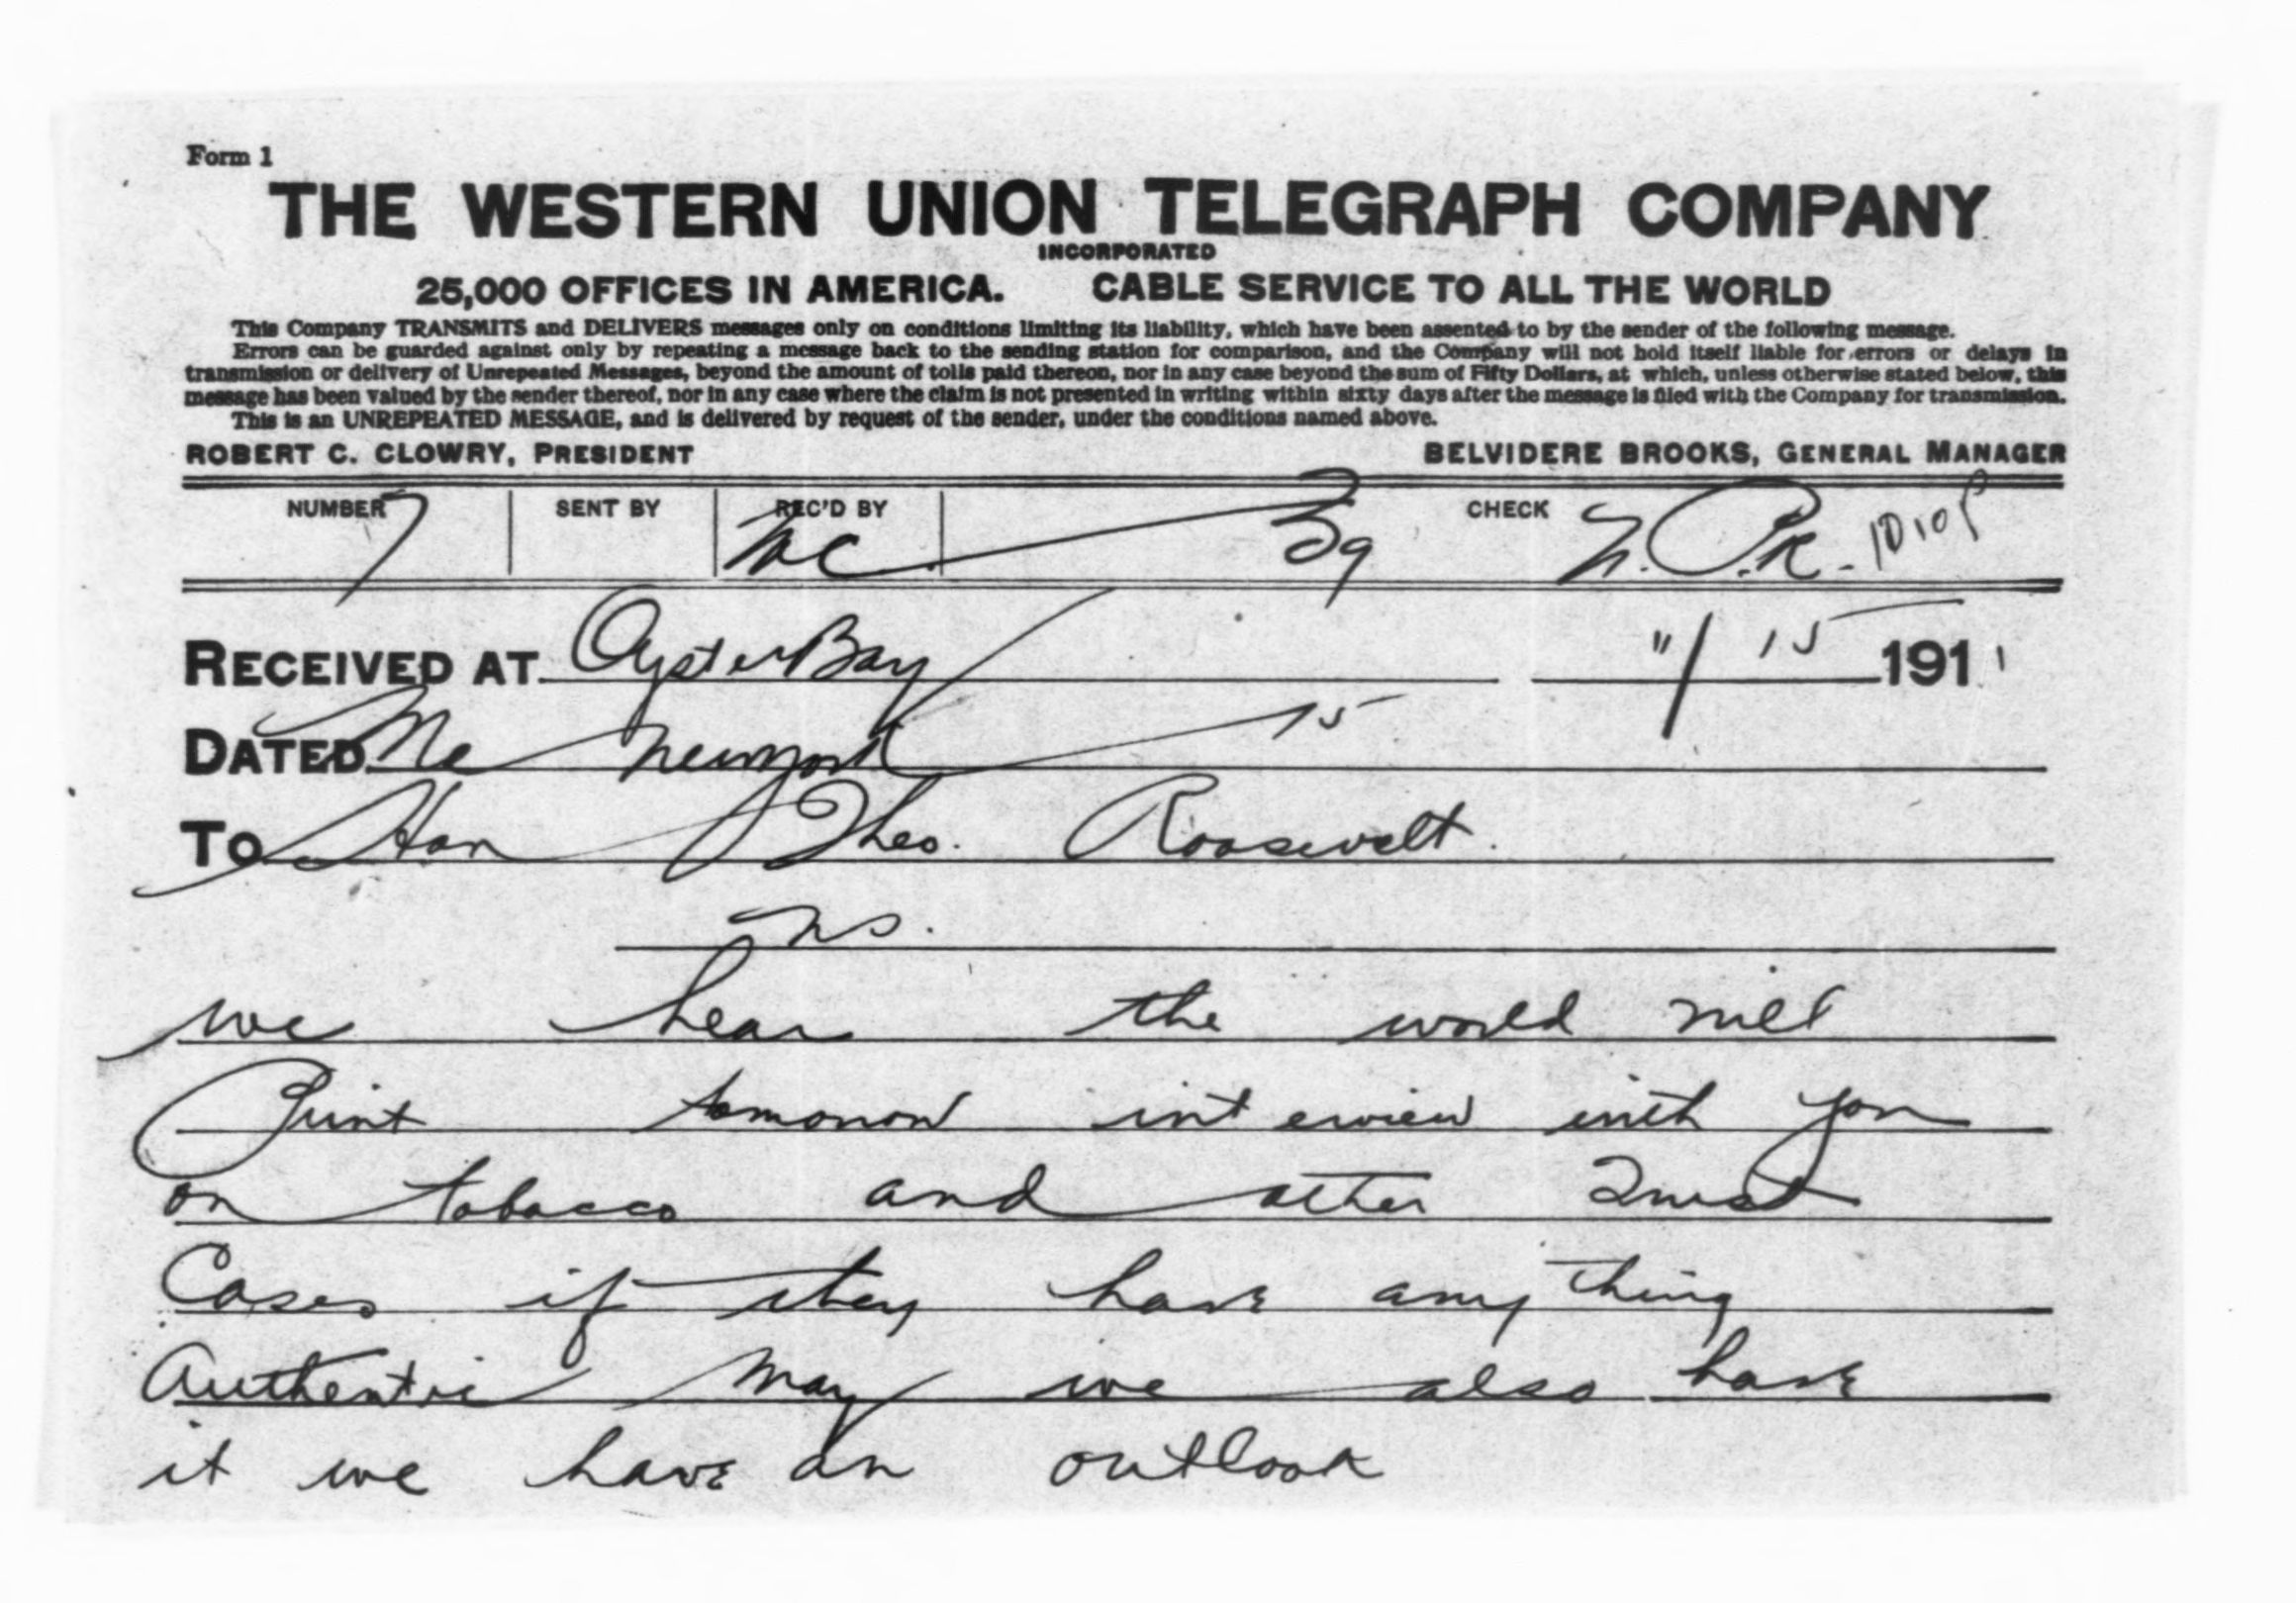 Form 1
THE WESTERN UNION TELEGRAPH COMPANY
INCORPORATED
25,000 OFFICES IN AMERICA. CABLE SERVICE TO ALL THE WORLD
This Company TRANSMITS and DELIVERS messages only on conditions limiting its liability, which have been assented to by the sender of the following message.
Errors can be guarded against only by repeating a message back to the sending station for comparison, and the Company will not hold itself liable for errors or delays in
transmission or delivery of Unrepeated Messages, beyond the amount of tolls paid thereon, nor in any case beyond the sum of Fifty Dollars, at which, unless otherwise stated below, this
message has been valued by the sender thereof, nor in any case where the claim is not presented in writing within sixty days after the message is filed with the Company for transmission.
This is an UNREPEATED MESSAGE, and is delivered by request of the sender, under the conditions named above.
ROBERT C. CLOWRY, PRESIDENT BELVIDERE BROOKS, GENERAL MANAGER
NUMBER 7 SENT BY REC'D BY 39 CHECK
RECEIVED AT Oyster Bay 11/15 1911
DATED Newyork 15
To Hon Theo. Roosevelt.
we hear the world will
Print tomorrow interview with you
on tobacco and other Trust
Cases if they have anything
Authentic may we also have
it we have an outlook